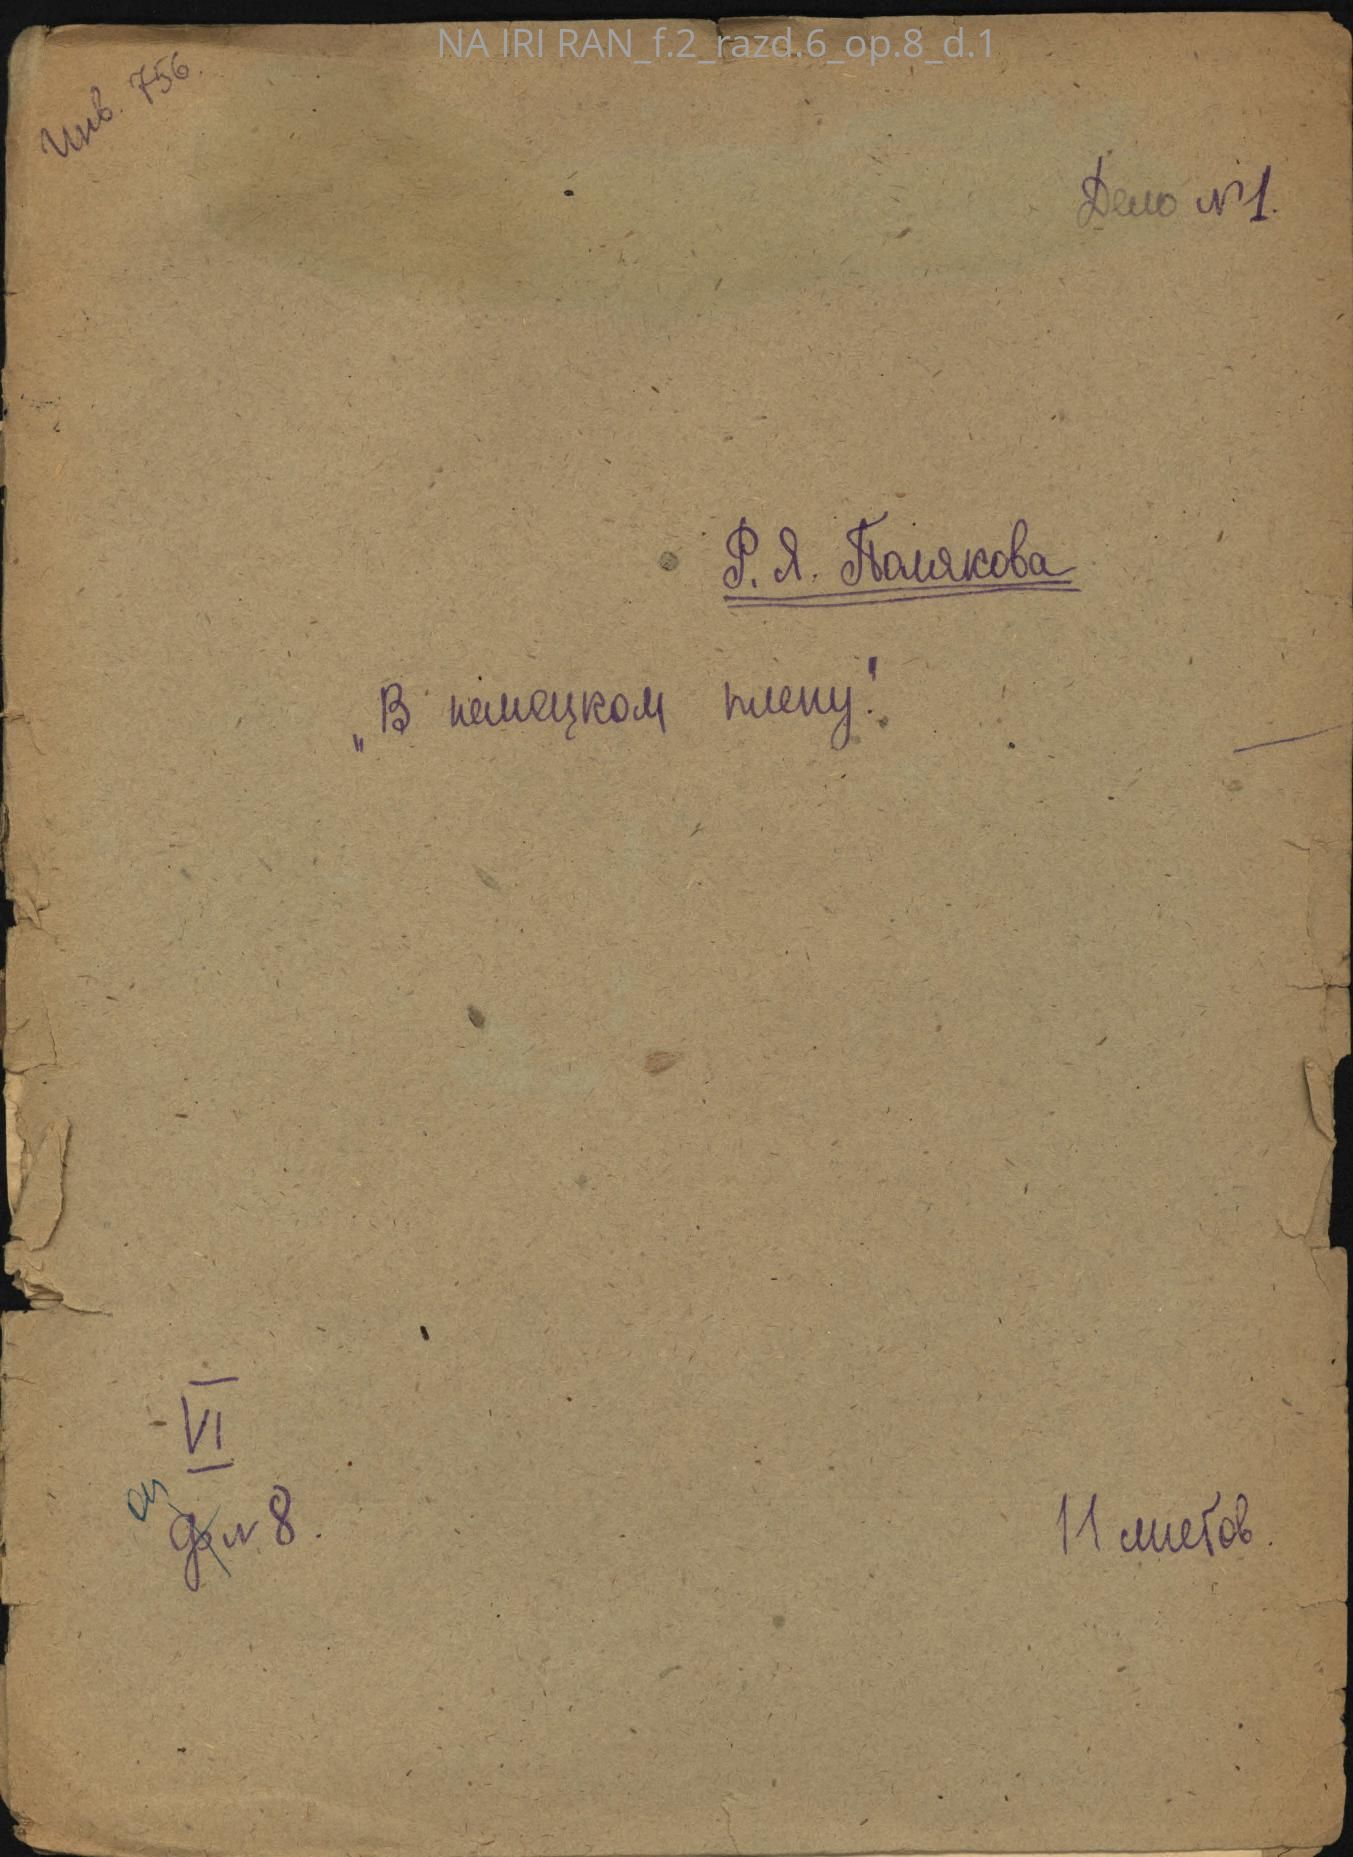 NA IRI RAN_f.2_razd.6_op.8_d.1
Инв. 756.
Дело №1.
Р. Я. Полякова
„В немецком плену".
VI
оп
№ 8.
11 листов.